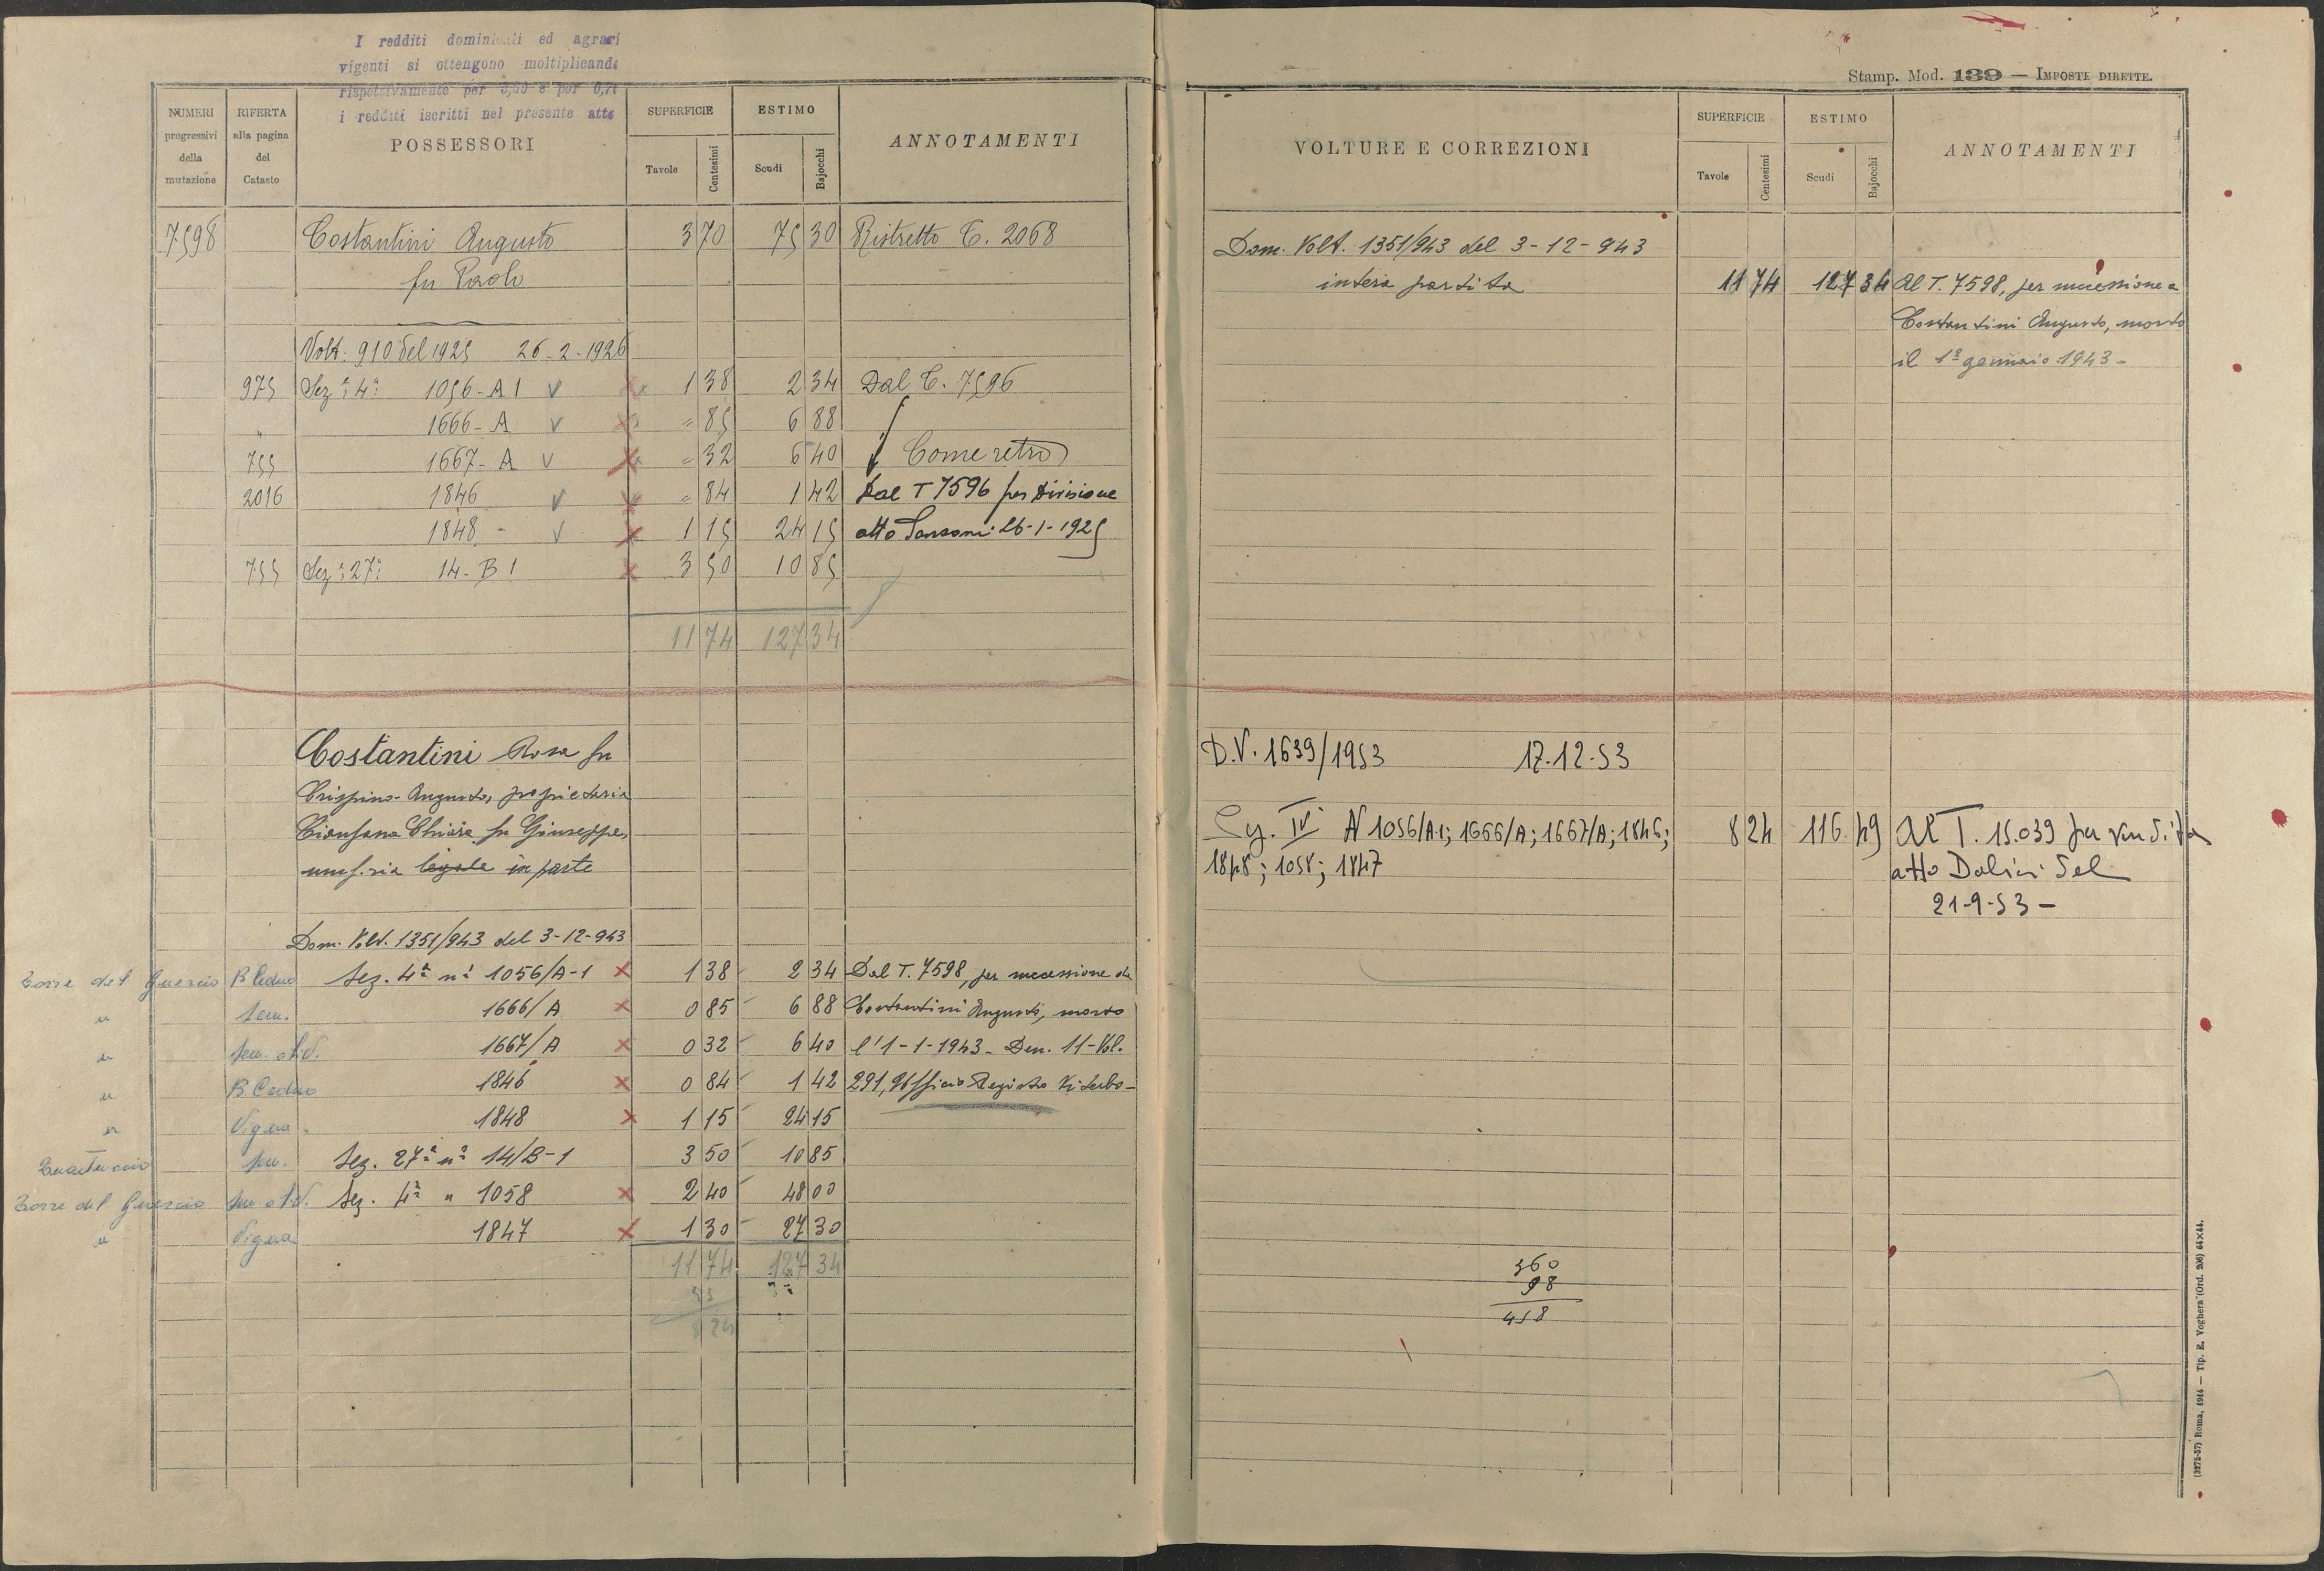 I redditi dominicali ed agrari
vigenti si ottengono moltiplicando
rispettivamente per 3,00 e per 0,7
i redditi iscritti nel presente atto
NUMERI progressivi della mutazione
RIFERTA alla pagina del Catasto
POSSESSORI
SUPERFICIE
Tavole Centesimi
ESTIMO
Scudi Bajocchi
ANNOTAMENTI
7598 Costantini Augusto 3 70 75 30 Ristretto C. 2068
fu Paolo
Volt. 910 del 1925 26-2-1926
975 Sez: 4ª 1056-A1 v 1 38 2 34 Dal C. 7596
" 1666-A v = 85 6 88
755 1667-A v = 32 6 40 Come retro
2016 1846 v = 84 1 42 Dal T 7596 per divisione
1848 - v 1 15 24 15 atto Sansoni 26-1-1925
755 Sez: 27ª 14-B1 3 50 10 85
11 74 127 34
Costantini Rosa fu
Crispino-Augusto, proprietaria
Chiara fu Giuseppe,
usuf.ria legale in parte
Dom. Volt. 1351/943 del 3-12-943
Torre del Guercio B. Ceduo Sez. 4ª nº 1056/A-1 1 38 2 34 Dal T. 7598, per successione da
" Sem. 1666/A 0 85 6 88 Costantini Augusto, morto
" 1667/A 0 32 6 40 l'1-1-1943- Den. 11-Vol.
" B. Ceduo 1846 0 84 1 42 291, Ufficio Registro Viterbo-
" Vigna 1848 1 15 24 15
Sem. Sez. 27ª nº 14/B-1 3 50 10 85
Torre del Guercio Sez. 4ª " 1058 2 40 48 00
" Vigna 1847 1 30 27 30
11 74 127 34
8 24
Stamp. Mod. 139 — IMPOSTE DIRETTE.
VOLTURE E CORREZIONI
SUPERFICIE
Tavole Centesimi
ESTIMO
Scudi Bajocchi
ANNOTAMENTI
Dom. Volt. 1351/943 del 3-12-943
intera partita 11 74 127 34 Al T. 7598, per successione a
Costantini Augusto, morto
il 1º gennaio 1943-
D.V. 1639/1953 17-12-53
IV N 1056/A1; 1666/A; 1667/A; 1846; 8 24 116 49 Al T. 15.039 per vendita
1848; 1058; 1847 atto Dolici del
21-9-53-
360
98
458
(3272-57) Roma, 1944 — Tip. E. Voghera (Ord. 206) 64×44.